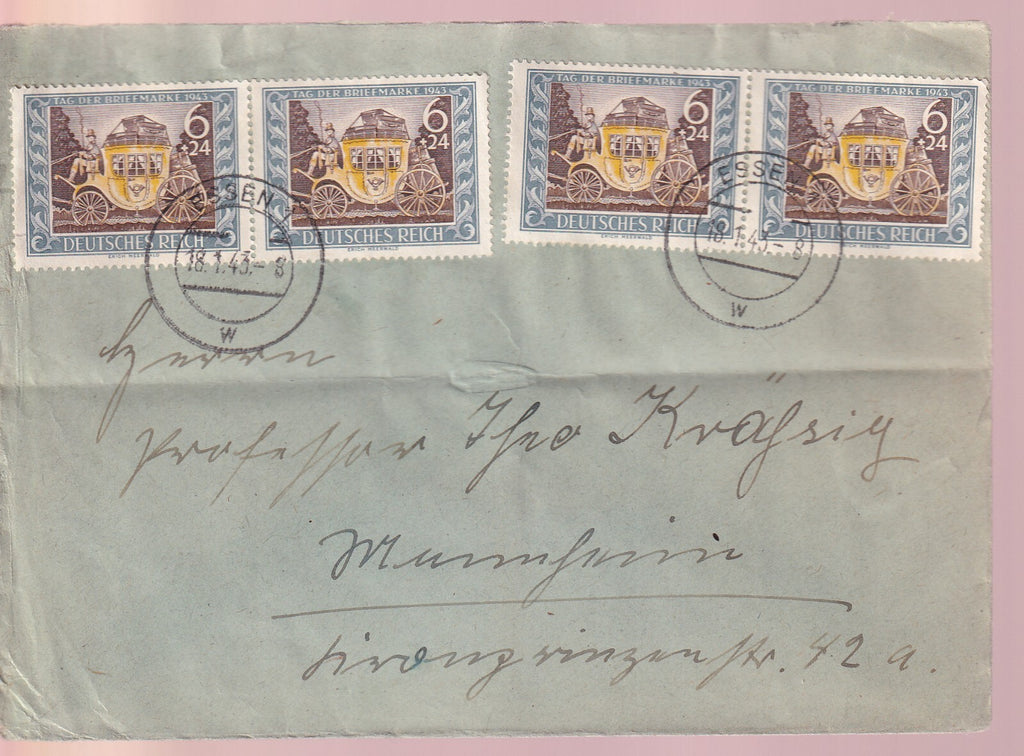 TAG DER BRIEFMARKE 1943
6
+24
DEUTSCHES REICH
ERICH MEERWALD
TAG DER BRIEFMARKE 1943
6
+24
DEUTSCHES REICH
ERICH MEERWALD
TAG DER BRIEFMARKE 1943
6
+24
DEUTSCHES REICH
ERICH MEERWALD
TAG DER BRIEFMARKE 1943
6
+24
DEUTSCHES REICH
ERICH MEERWALD
ESSEN 1
18.1.43.-8
w
ESSEN
18.1.43.-8
w
Herrn
Professor Theo
Mannheim
Kronprinzenstr. 42 a.